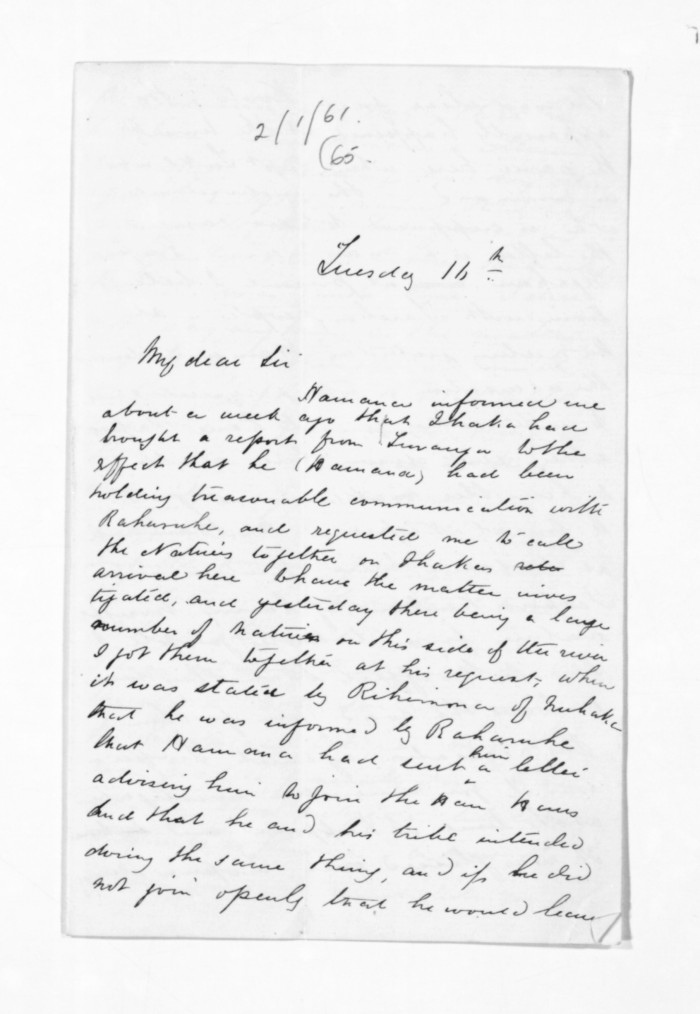 2/1/61.
(65.
Tuesday 14th
My dear Sir
Hamana informed me
about a week ago that Ihaka had
brought a report from Turanga to the
effect that he (Hamana) had been
holding treasonable communication with
Raharuhe, and requested me to call
the Natives together on Ihakas
arrival here to have the matter inves
tigated, and yesterday there being a large
number of Natives on this side of the river
I got them together at his request, when
it was stated by Rihimona of Nuhaka
that he was informed by Raharuhe
that Hamana had sent him a letter
advising him to join the Hau Haus
and that he and his tribe intended
doing the same thing, and if he did
not join openly that he would leave